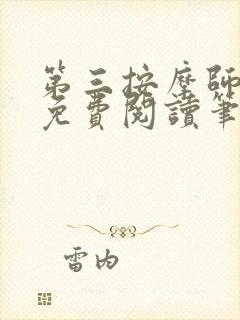 第三按摩师
免費閱讀筆
雷内